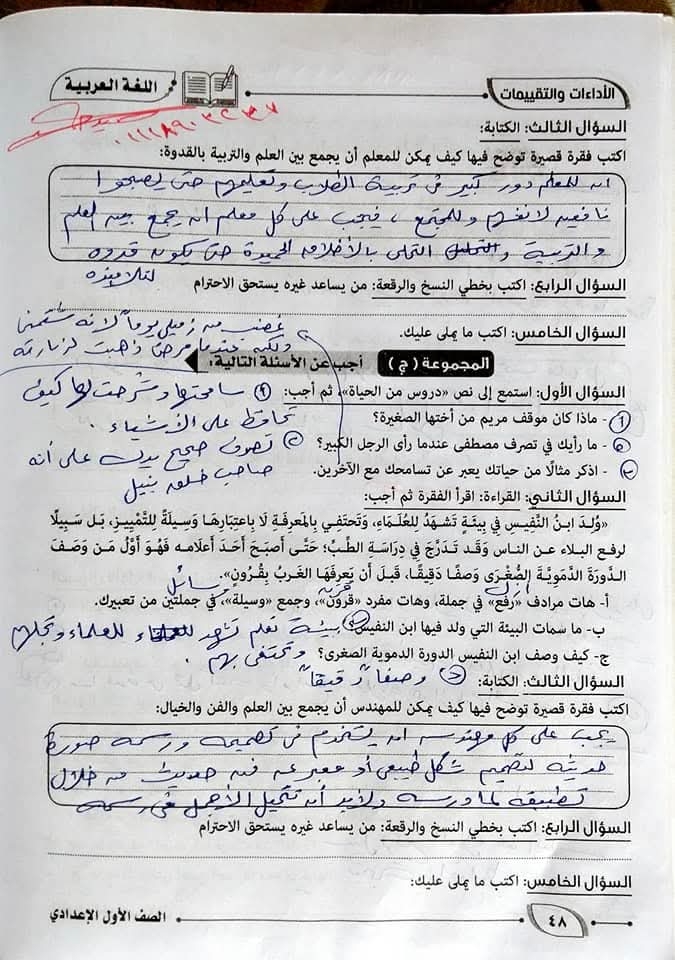 الأداءات والتقييمات
اللغة العربية
٠١١١٨٩٠٣٢٣٧
السؤال الثالث: الكتابة:
اكتب فقرة قصيرة توضح فيها كيف يمكن للمعلم أن يجمع بين العلم والتربية بالقدوة:
ان للمعلم دور كبير في تربية الطلاب وتعليمهم حتى يصبحوا
نافعين لانفسهم وللمجتمع ، فيجب على كل معلم ان يجمع بين العلم
والتربية و التحلى بالأخلاق الحميدة حتى يكون قدوه
لتلاميذه
السؤال الرابع: اكتب بخطي النسخ والرقعة: من يساعد غيره يستحق الاحترام
السؤال الخامس: اكتب ما يملى عليك.
غضبت من زميلى يوماً لانه شتمنى
ولكنه عندما مرض ذهبت لزيارته
المجموعة (ج) أجب عن الأسئلة التالية:
السؤال الأول: استمع إلى نص «دروس من الحياة»، ثم أجب:
أ سامحتها وشرحت لها كيف
تحافظ على الأشياء .
أ - ماذا كان موقف مريم من أختها الصغيرة؟
ب - ما رأيك في تصرف مصطفى عندما رأى الرجل الكبير؟
ب تصرف صحيح يدل على أنه
صاحب خلق نبيل
ج - اذكر مثالًا من حياتك يعبر عن تسامحك مع الآخرين.
السؤال الثاني: القراءة: اقرأ الفقرة ثم أجب:
«وُلِدَ ابنُ النَّفِيسِ فِي بِيئَةٍ تَشْهَدُ لِلْعُلَمَاءِ، وَتَحْتَفِي بِالْمَعرِفَةِ لَا بِاعتِبَارِهَا وَسِيلَةً لِلتَّمْيِيزِ، بَل سَبِيلًا
لرفعِ البلاءِ عن الناس وَقَد تَدَرَّجَ فِي دِرَاسَةِ الطِّبِّ؛ حَتَّى أَصبَحَ أَحَدَ أَعلَامه فَهُوَ أَوَّلُ مَن وَصَفَ
الدَّورَةَ الدَّمَوِيَّةَ الصُّغْرَى وَصفًا دَقِيقًا، قَبلَ أَن يَعرِفَهَا الغَربُ بِقُرُونٍ».
أ- هات مرادف «رَفْع» في جملة، وهات مفرد «قُرُون»، وجمع «وسيلة»، في جملتين من تعبيرك.
قرن
وسائل
ب- ما سمات البيئة التي ولد فيها ابن النفيس؟
بيئة تعلم تشهد للعلماء وتجلهم
وتحتفى بهم .
ج- كيف وصف ابن النفيس الدورة الدموية الصغرى؟
ج وصفاً دقيقاً
السؤال الثالث: الكتابة:
اكتب فقرة قصيرة توضح فيها كيف يمكن للمهندس أن يجمع بين العلم والفن والخيال:
يجب على كل مهندس ان يستخدم في تصميمه ورسمه صورة
حديثه لتصميم شكل طبيعى أو معبر عن فن حديث من خلال
تطبيقه لما درسه ولابد أن يتخيل الأجمل في رسمه
السؤال الرابع: اكتب بخطي النسخ والرقعة: من يساعد غيره يستحق الاحترام
السؤال الخامس: اكتب ما يملى عليك:
٤٨
الصف الأول الإعدادي